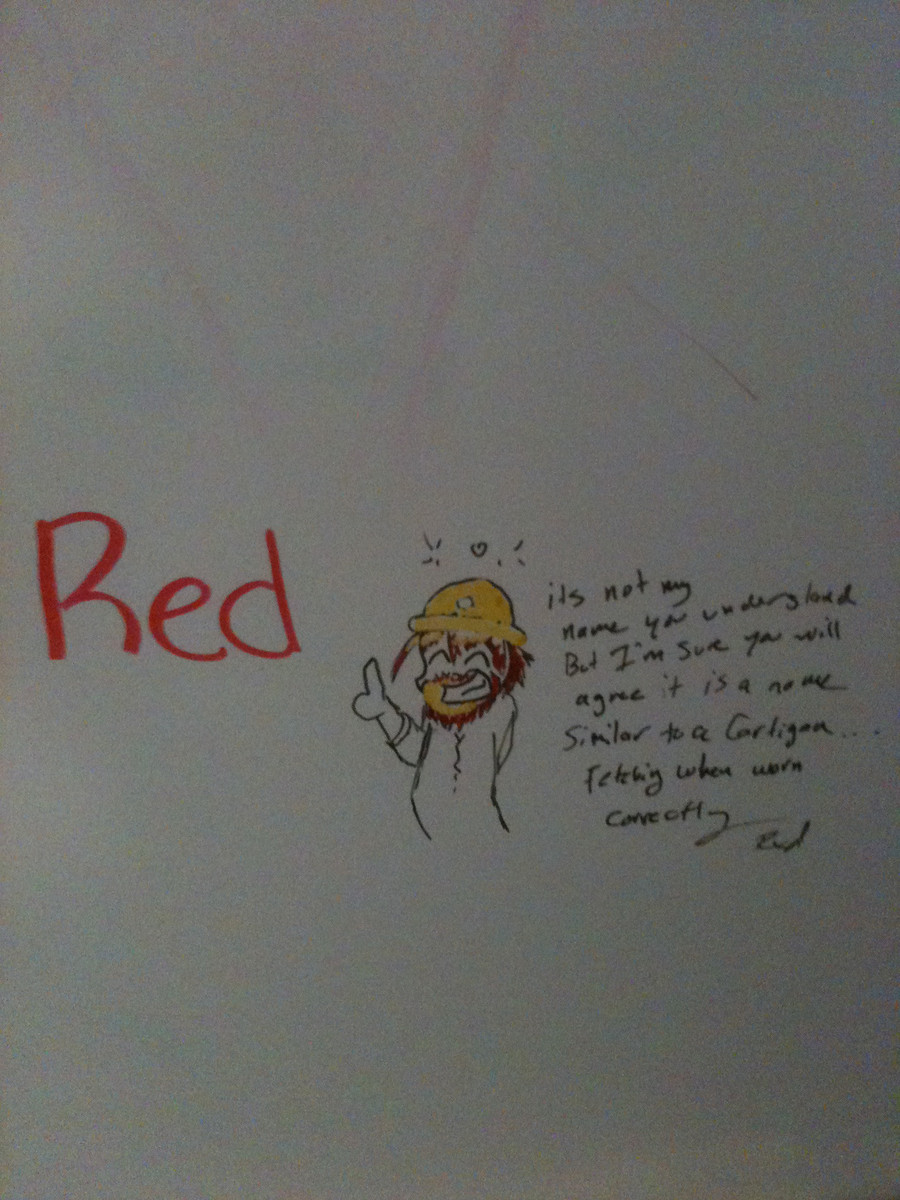 Red
its not my
name you understand
But I'm sure you will
agree it is a name
similar to a Cartigan...
Fetching when worn
correctly
Red